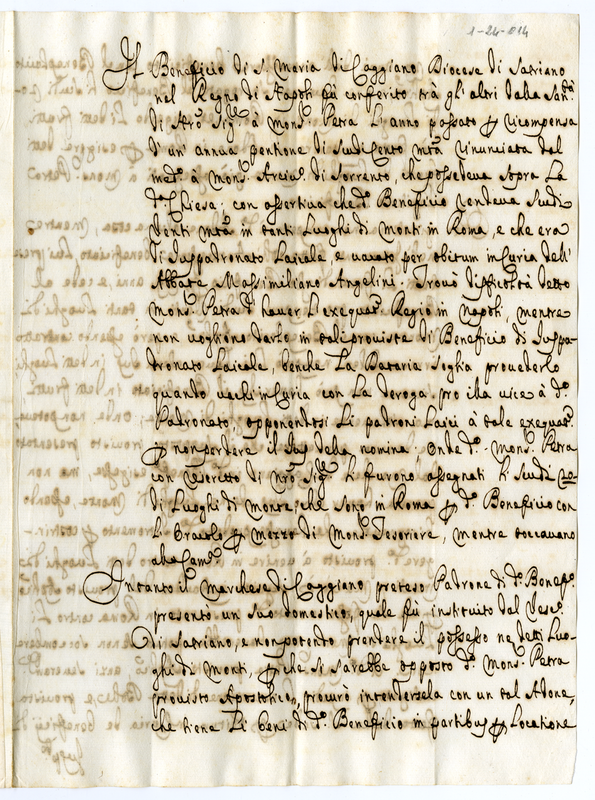 1-24-014
Il Beneficio di S. Maria di Caggiano Diocese di Satriano
nel Regno di Napoli fù conferito trà gli altri dalla San.tà
di Nr̃o Sig.re à Mons. Petra l'anno passato p ricompensa
d'un' annua pentione di scudi Cento m.ta rinunciata dal
med.o à Mons. Arciv.o di Sorrento, che possedeva sopra La
d.a Chiesa; con assertiva che d.o Beneficio rendeva scudi
Venti m.ta in tanti Luoghi di Monti in Roma, e che era
di Juspadronato Laicale, e vacato per obitum in Curia dell'
Abbate Massimiliano Angelini. Trovò difficoltà detto
Mons. Petra d'haver L'exequat.r Regio in Napoli, mentre
non vogliono darlo in tali proviste di Beneficio di Juspa-
dronato Laicale, benche La Dataria soglia provederlo
quando vachi in Curia con La deroga pro illa vice à d.o
Padronato, opponendosi Li padroni Laici à tale exequat.r
p non perdere il Jus della nomina; Onde d.o Mons. Petra
con rescritto di Nr̃o Sig.re li furono assegnati li scudi 20-
di Luoghi di Monte, che sono in Roma p d.o Beneficio con
L'Oracolo p mezzo di Mons. Tesoriere, mentre toccavano
alla Cam.a
Intanto il Marchese di Caggiano preteso Padrone di d.o Benef.o
presentò un suo domestico, quale fù instituito dal Vesc.o
di Satriano, e non potendo prendere il possesso ne detti Luo-
ghi di Monti, p che si sarebbe opposto d.o Mons. Petra
provisto Apostolico, procurò intendersela con un tal Adone,
che tiene Li beni di d.o Beneficio in partibus p Locatione